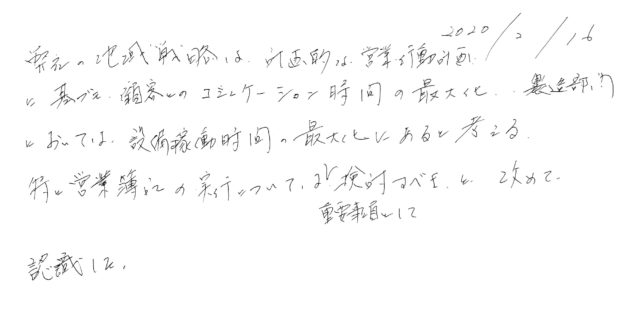 2020/2/16
弊社の地域戦略は、計画的な営業行動計画
に基づく、顧客とのコミニケーション時間の最大化、製造部門
においては、設備稼働時間の最大化にあると考える。
特に営業簿記の実行について、検討すべき、と改めて
重要事項として
認識した。